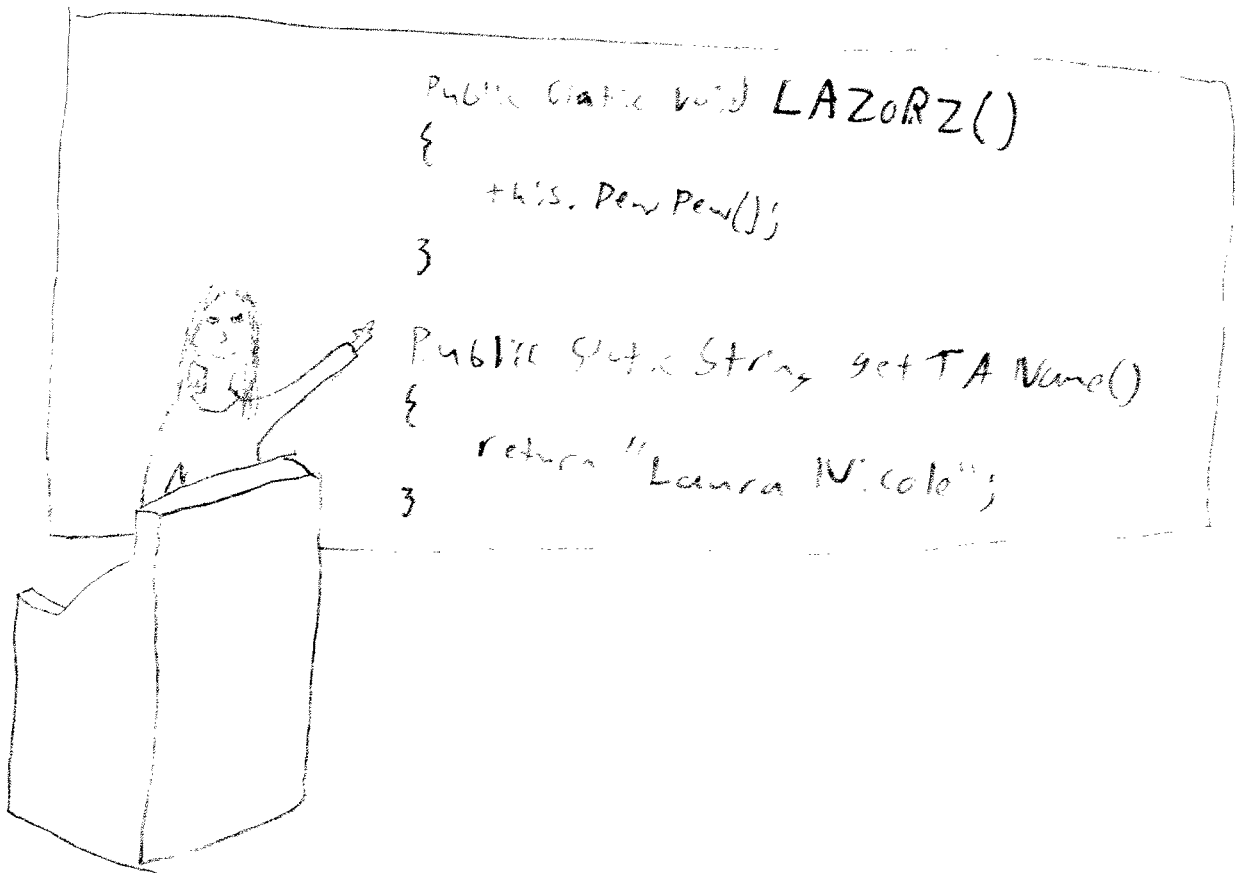 Public Static Void LAZoRZ()
{
this. Pew Pew();
}
Public Static String get TA Name()
{
return "Laura Nicole";
}